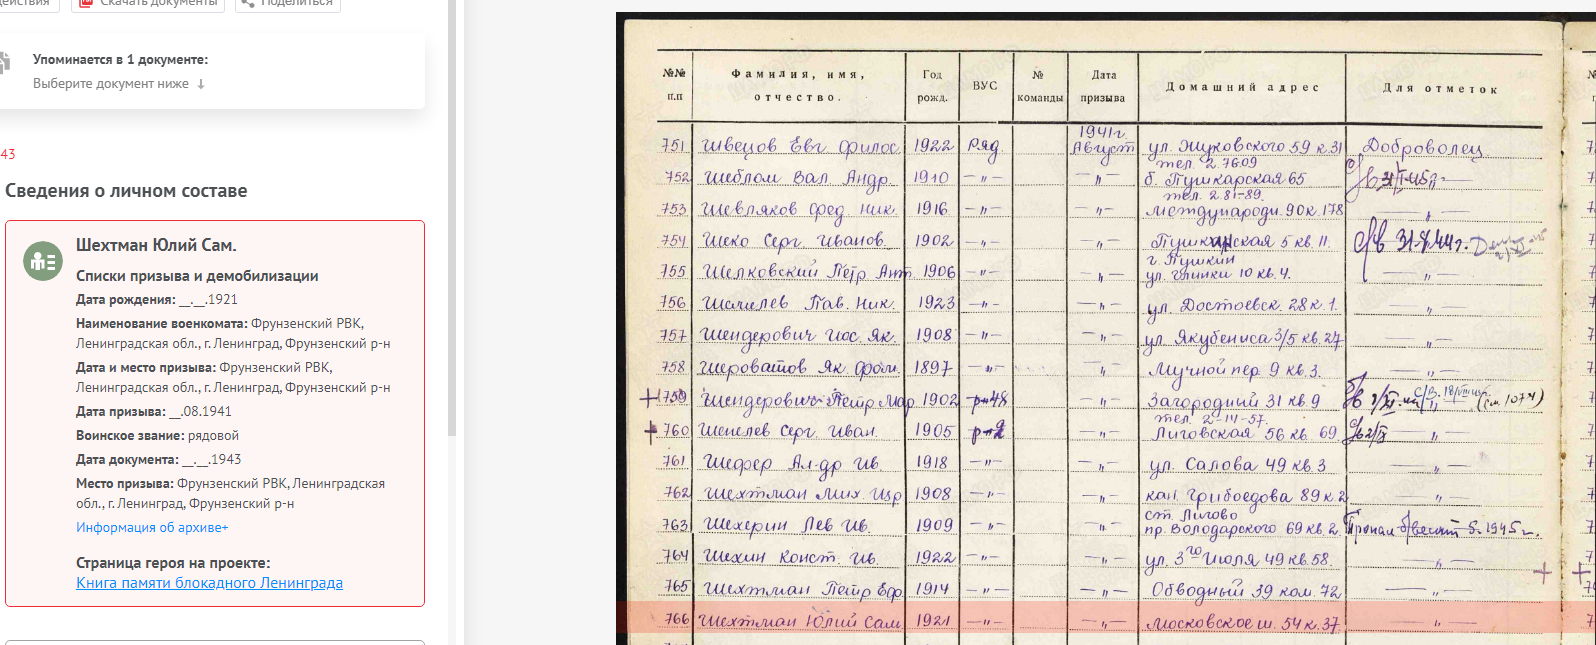 действия
Скачать документы
Поделиться
Упоминается в 1 документе:
Выберите документ ниже ↓
43
Сведения о личном составе
Шехтман Юлий Сам.
Списки призыва и демобилизации
Дата рождения: __.__.1921
Наименование военкомата: Фрунзенский РВК,
Ленинградская обл., г. Ленинград, Фрунзенский р-н
Дата и место призыва: Фрунзенский РВК,
Ленинградская обл., г. Ленинград, Фрунзенский р-н
Дата призыва: __.08.1941
Воинское звание: рядовой
Дата документа: __.__.1943
Место призыва: Фрунзенский РВК, Ленинградская
обл., г. Ленинград, Фрунзенский р-н
Информация об архиве+
Страница героя на проекте:
Книга памяти блокадного Ленинграда
№№ п.п Фамилия, имя, отчество. Год рожд. ВУС № команды Дата призыва Домашний адрес Для отметок
1941г.
751 Швецов Евг. Филос. 1922 ряд. Август ул. Жуковского 59 к 31 Доброволец
тел. 2.76.09
752 Шеблом Вал Андр. 1910 —"— —"— б. Пушкарская 65
тел. 2.81-89.
753 Шевляков Фед. Ник. 1916 —"— —"— Международн. 90 к. 178 —"—
754 Шеко Серг. Иванов. 1902 —"— —"— Пушкинская 5 кв. 11.
г. Пушкин
755 Шелковский Петр Ант 1906 —"— —"— ул. Глинки 10 кв. 4. —"—
756 Шемелев Пав. Ник. 1923 —"— —"— ул. Достоевск. 28 к. 1. —"—
757 Шендерович Иос. Як. 1908 —"— —"— ул. Якубениса 3/5 кв. 27 —"—
758 Шероватов Як. Фом. 1897 —"— —"— Мучной пер. 9 кв. 3. —"—
759 Шендерович Петр Мар. 1902 —"— Загородний 31 кв. 9 (см. 1074)
тел. 2-14-57.
760 Шепелев Серг. Иван. 1905 —"— Лиговская 56 кв. 69. —"—
761 Шефер Ал-др Ив. 1918 —"— —"— ул. Салова 49 кв. 3 —"—
762 Шехтман Мих. Изр 1908 —"— —"— кан. Грибоедова 89 к 2 —"—
ст. Лигово
763 Шехерин Лев Ив. 1909 —"— —"— пр. Володарского 69 кв. 2. Пропал б/вест 5. 1945 г.
764 Шехин Конст. Ив. 1922 —"— —"— ул. 3го Июля 49 кв. 58. —"—
765 Шехтман Петр Еф. 1914 —"— —"— Обводный 39 ком. 72 —"—
766 Шехтман Юлий Сам. 1921 —"— —"— Московское ш. 54 к. 37 —"—